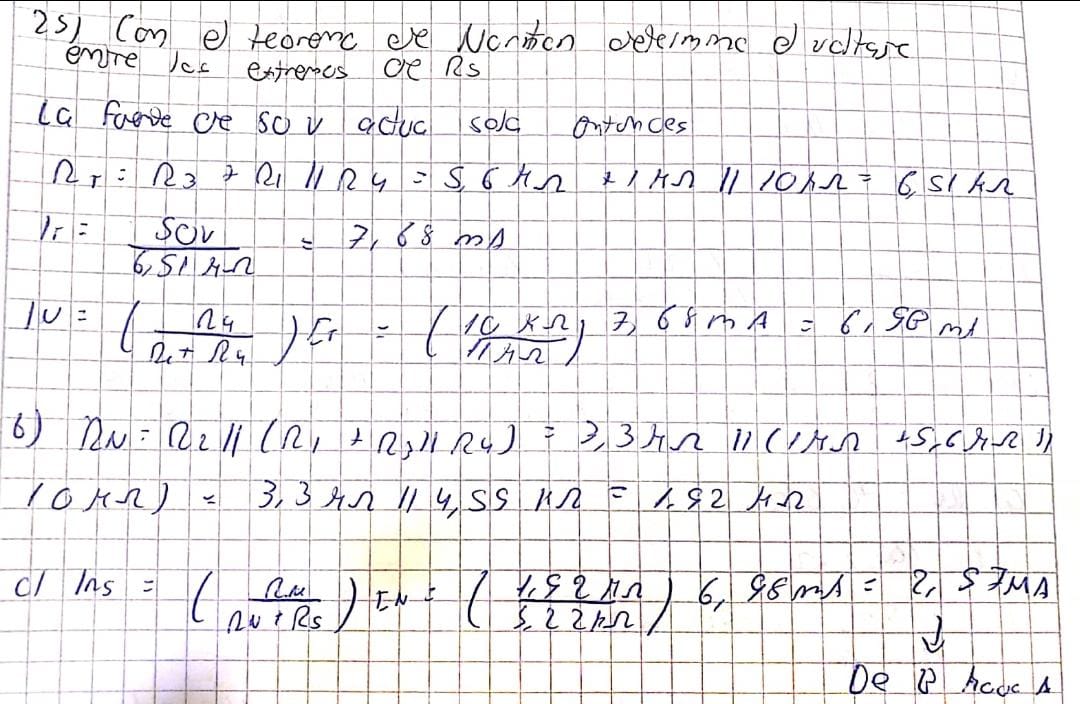 25) Con el teorema de Norton determine el voltaje
entre los extremos de R5
La fuente de 50 V actua sola entonces
RT = R3 + R1 || R4 = 5,6 KΩ + 1 KΩ || 10 KΩ = 6,51 KΩ
IT = 50V / 6,51 KΩ = 7,68 mA
IN = (R4 / R1 + R4) IT = (10 KΩ / 11 KΩ) 7,68 mA = 6,98 mA
b) RN = R2 || (R1 + R3 || R4) = 3,3 KΩ || (1 KΩ + 5,6 KΩ ||
10 KΩ) = 3,3 KΩ || 4,59 KΩ = 1,92 KΩ
c) IR5 = (RN / RN + R5) IN = (1,92 KΩ / 5,22 KΩ) 6,98 mA = 2,57 MA
↓
De B hacia A